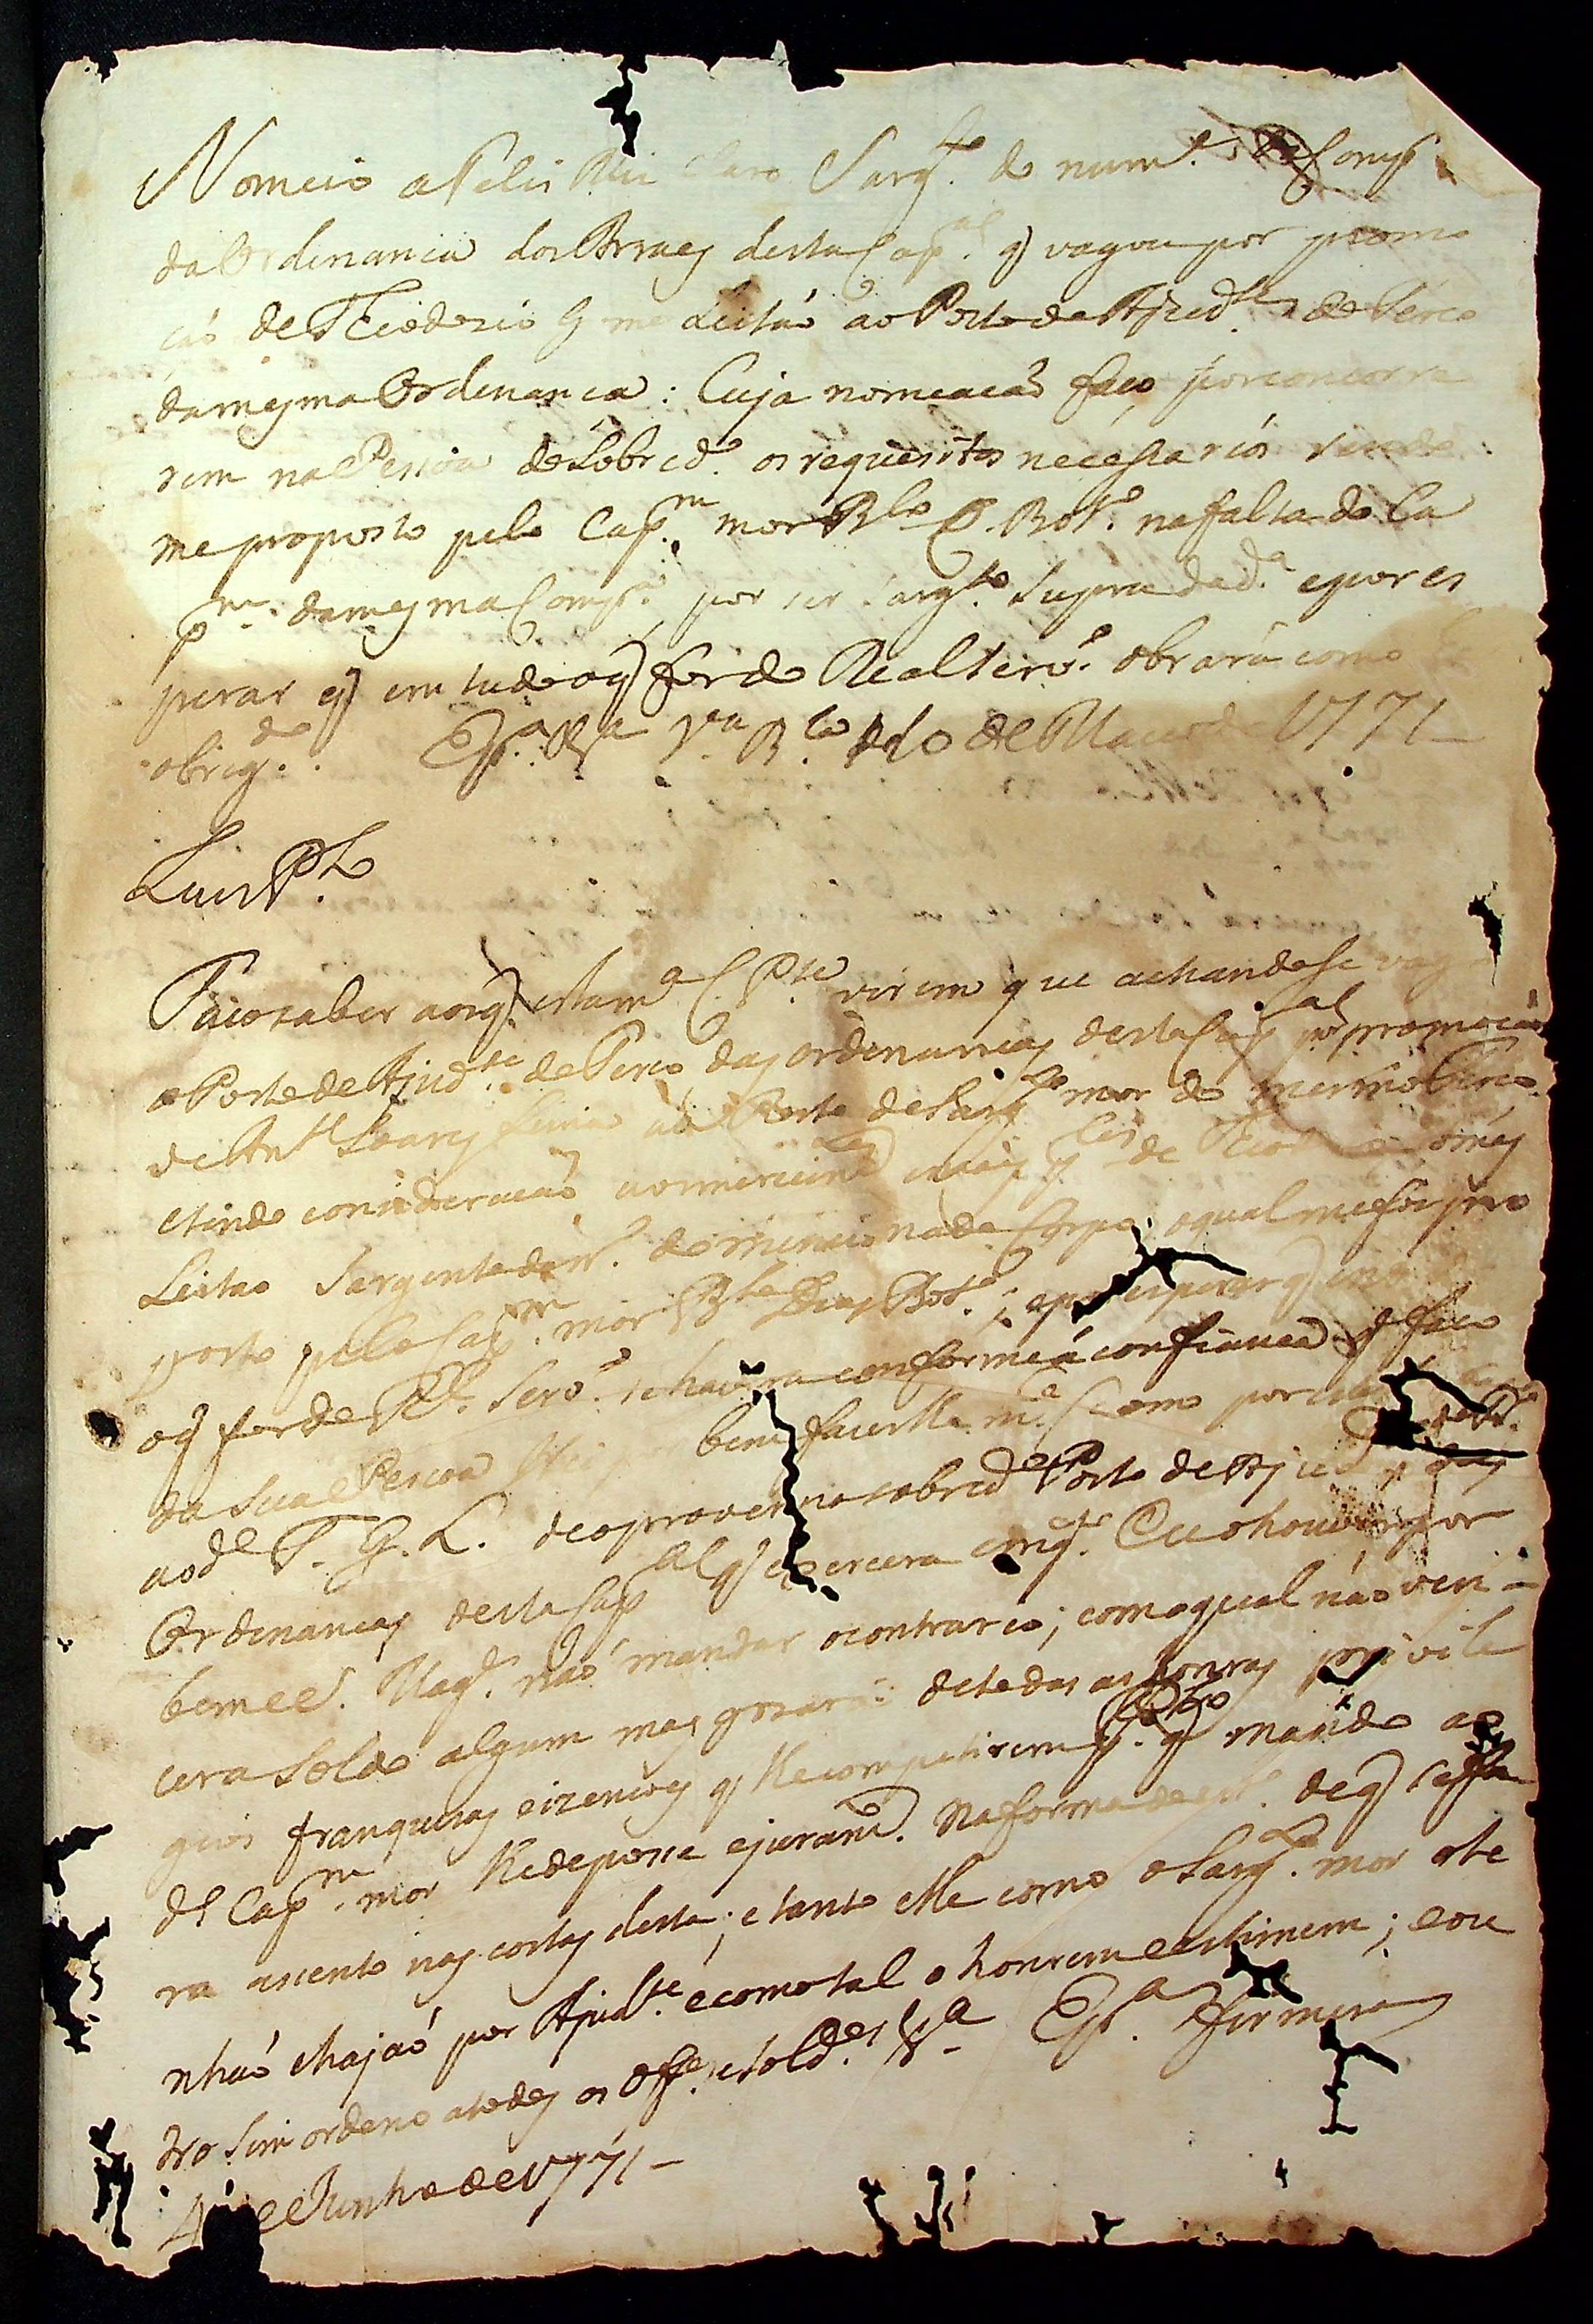 Nomeio a Felis Sarg.to do num.º da Comp.
da Ordenancia dos Arraes desta Cap.al q vagou por promo
cáo de Teodozio Gomes Leitáo ao Posto de Ajud.te de Terco
da mesma Ordenanca: Cuja nomeacaó faço por concorre
rem na Pessoa do Sobred.º os requesitos necessarios
me proposto pelo Cap.m mor B.lo D. Bot.º na falta do Ca
p.m da mesma Comp.ª por ser Sarg.to Supra dad.ª e por es
perar q em tudo o q for do Real Serv.º obrará como
obrig.do Esp.ª &.ª V.ª B.la de 10 de Marco de 1771
Luis P.to
Faco saber aos q esta m.ª C. P.te virem que achandose vago
o Posto de Ajud.te de Terco das ordenancas desta Cap.al por promocáo
de An.to Soares Lima ao Posto de Sarg.to mor do mesmo Terco
e tendo consideracáo ao merecim.to de Gomes
Leitao Sargento do n.º do mencionado Corpo, o qual me foi pro
posto pelo Cap.m mor B.lo Dias Bot.º; e por esperar q em
o q for do R.l Serv.º se havera conforme á confianca q faco
da Sua Pessoa bem fazerlhe m.ce (como por esta
ao d.º T. G. L. de o prover no sobred.º Posto de Ajud.te das
Ordenancas desta Cap.al q exercera emq.to Eu o houver por
bem e S. Mag.e náo mandar o contrario; com o qual náo ven
cera Soldo algum mas gozará de todas as honras privile
gios franquezas e izencoes q lhe competirem P.lo q mando ao
d.º Cap.m mor lhe de posse e juram.to na forma de est.º de q se fa
ra assento nas costas desta; e tanto elle como o Sarg.to mor o te
nhaó e hajaó por Ajud.te e como tal o honrem e estimem; e ou
tro Sim ordeno a todos os Off.es e Sold.os &.ª Esp.ª firmeza
4 de Junho de 1771